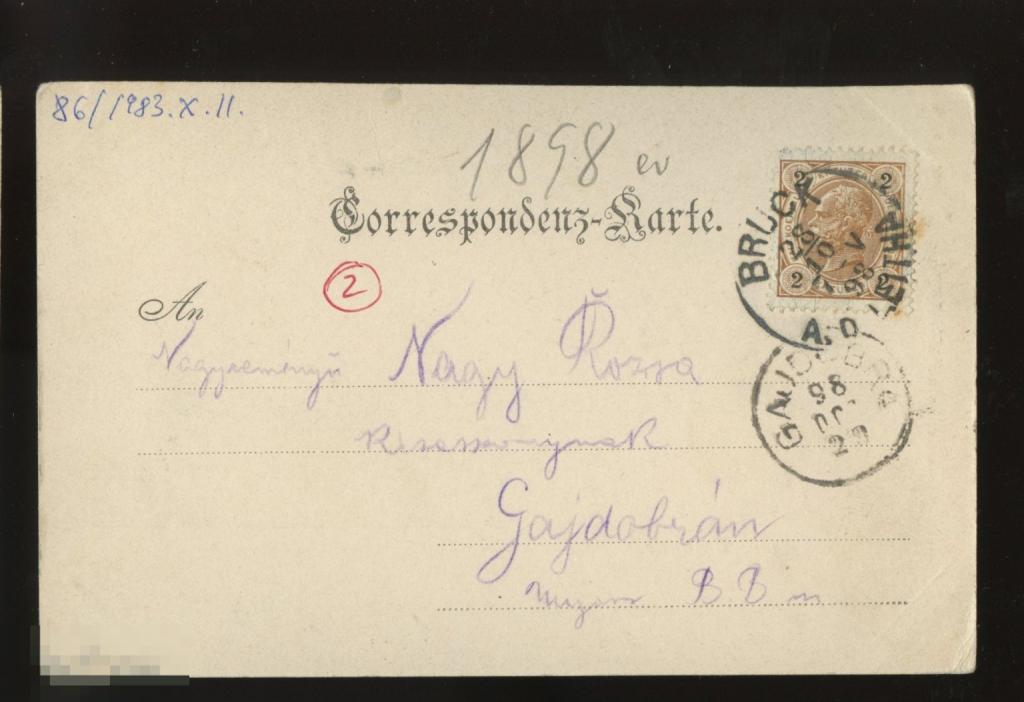 86/1983.X.11.
1898 ev
Correspondenz-Karte.
2 2
2 2
BRUCK A.D. LEITHA
28 10 98 V
2
An
Nagyreményű Nagy Rózsa
Kisasszonynak
Gajdobrán
GAJDOBRA
98
29
B B m